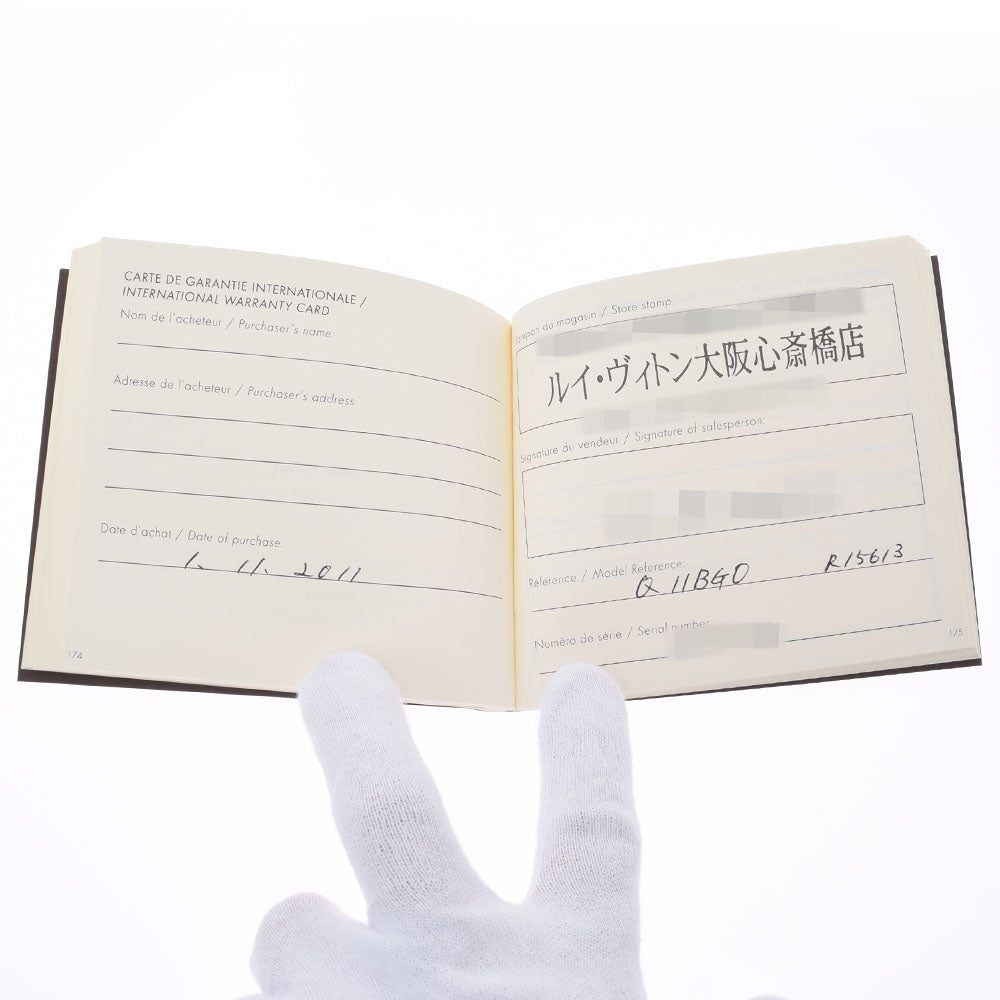 CARTE DE GARANTIE INTERNATIONALE /
INTERNATIONAL WARRANTY CARD
Nom de l'acheteur / Purchaser's name:
Adresse de l'acheteur / Purchaser's address:
Date d'achat / Date of purchase:
1. 11. 2011
174
Tampon du magasin / Store stamp:
ルイ・ヴィトン大阪心斎橋店
Signature du vendeur / Signature of salesperson:
Référence / Model Reference:
Q 11BG0 R15613
Numéro de série / Serial number:
175